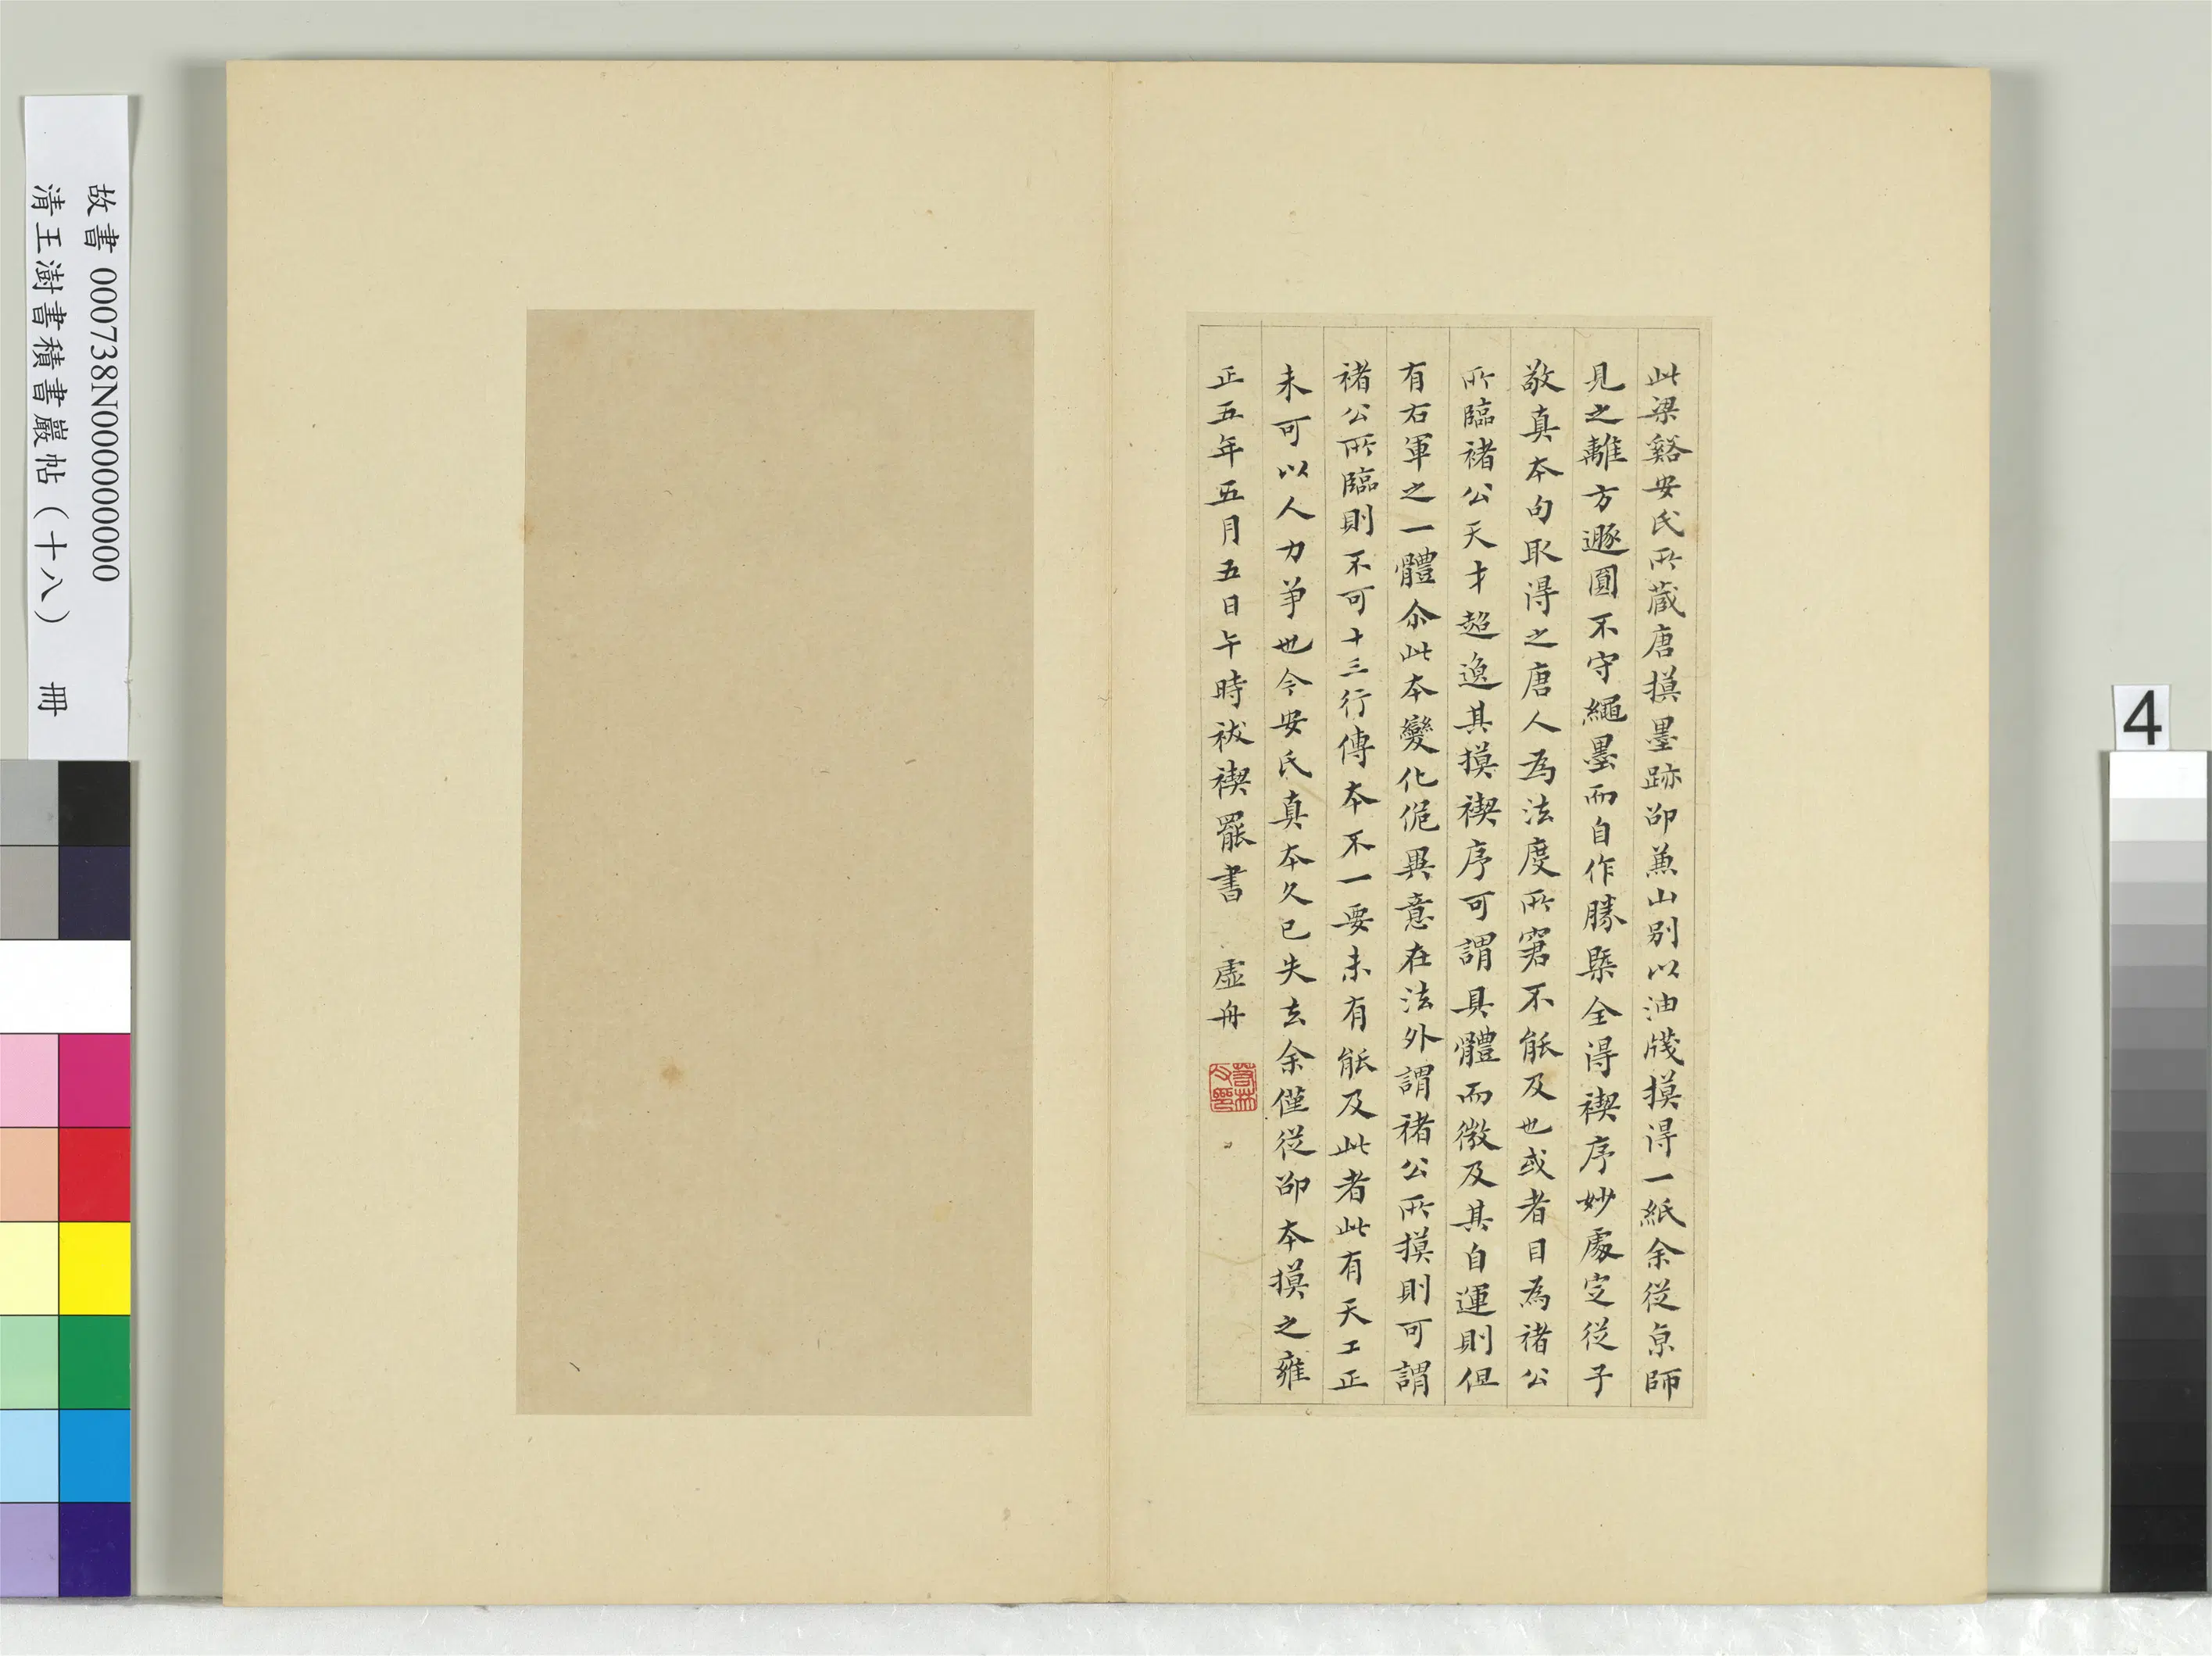 此梁谿安氏所藏唐摸墨跡邵蕉山別以油牋摸得一紙余從京師
見之離方遯圓不守繩墨而自作勝槩全得禊序妙處定從子
敬真本句取得之唐人為法度所窘不能及也或者目為褚公
所臨褚公天才超逸其摸禊序可謂具體而微及其自運則但
有右軍之一體尒此本變化佹異意在法外謂褚公所摸則可謂
褚公所臨則不可十三行傳本不一要未有能及此者此有天工正
未可以人力爭也今安氏真本久已失去余僅從邵本摸之雍
正五年五月五日午時祓禊罷書 虛舟
故書 000738N000000000
清王澍書積書巖帖（十八） 冊
4